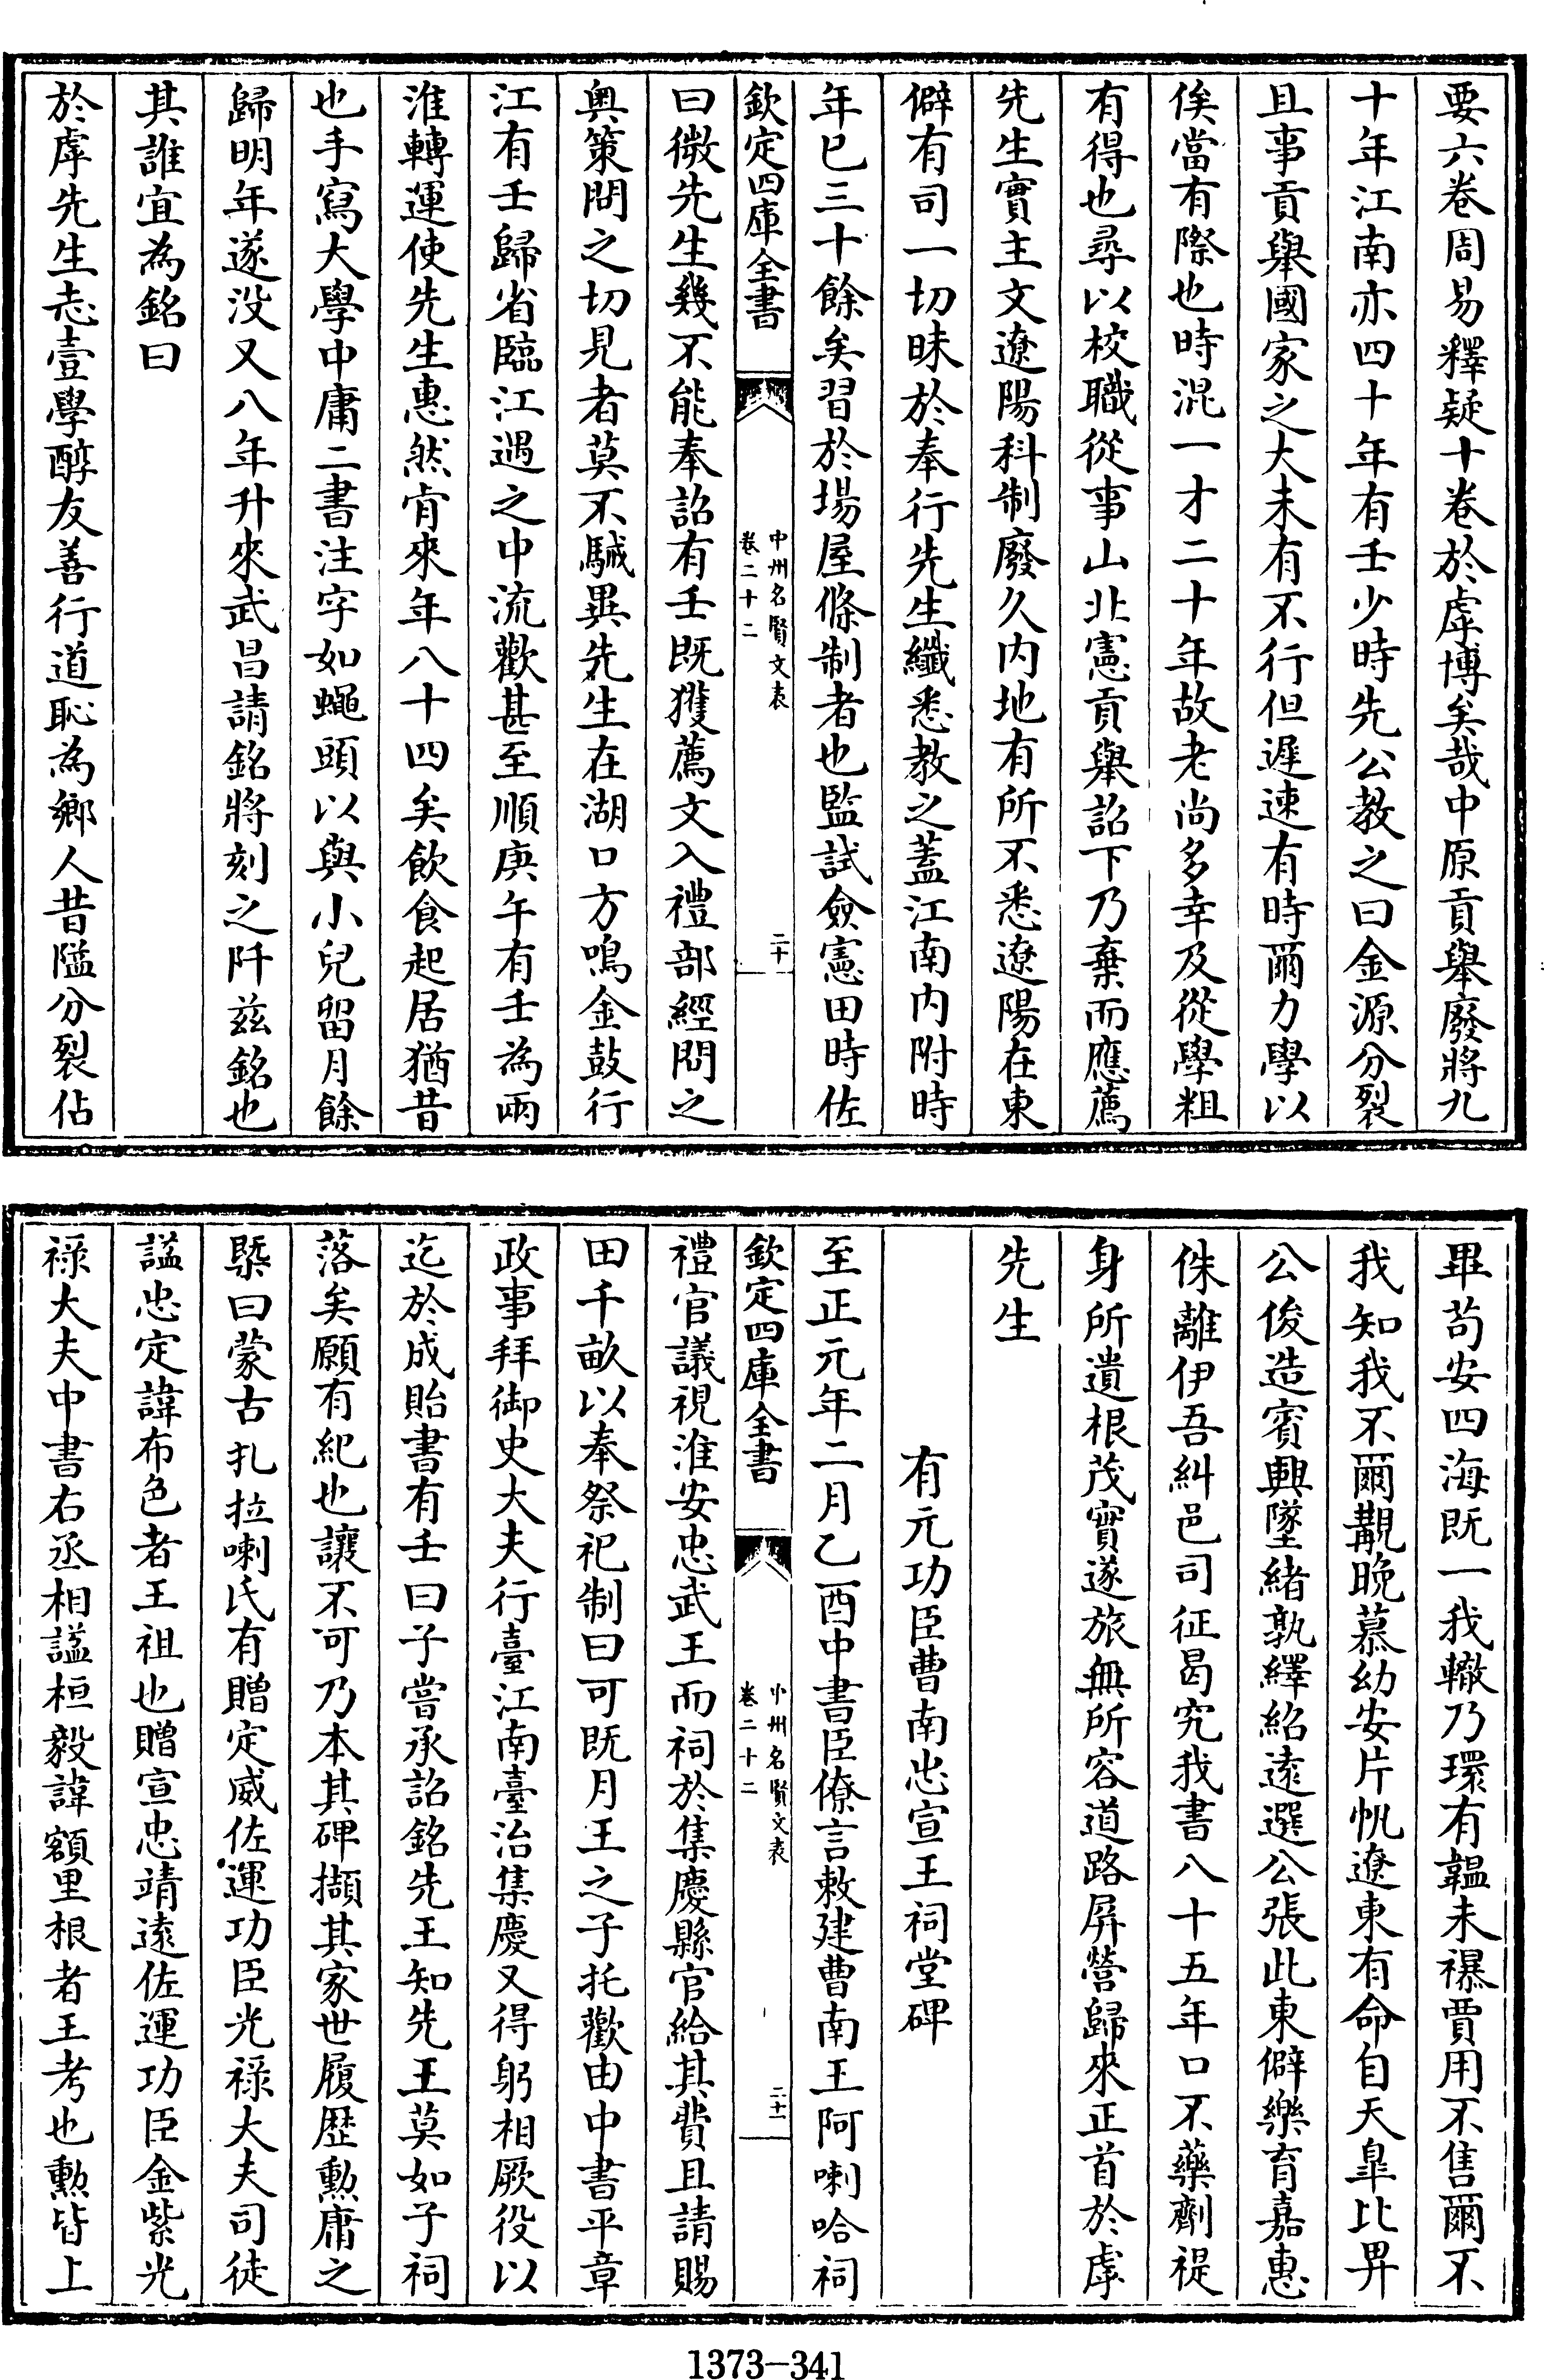 要六卷周易釋疑十卷於虖博矣哉中原貢舉廢將九
十年江南亦四十年有壬少時先公教之曰金源分裂
且事貢舉國家之大未有不行但遲速有時爾力學以
俟當有際也時混一才二十年故老尚多幸及從學粗
有得也尋以校職從事山北憲貢舉詔下乃棄而應薦
先生實主文遼陽科制廢久内地有所不悉遼陽在東
僻有司一切昧於奉行先生纖悉教之蓋江南内附時
年已三十餘矣習於場屋條制者也監試僉憲田時佐
欽定四庫全書
中州名賢文表
卷二十二
二十
曰微先生幾不能奉詔有壬既獲薦文入禮部經問之
奥策問之切見者莫不駴異先生在湖口方鳴金鼓行
江有壬歸省臨江遇之中流歡甚至順庚午有壬為兩
淮轉運使先生惠然肯來年八十四矣飲食起居猶昔
也手寫大學中庸二書注字如蠅頭以與小兒留月餘
歸明年遂没又八年升來武昌請銘將刻之阡兹銘也
其誰宜為銘曰
於虖先生志壹學醇友善行道恥為鄉人昔隘分裂佔
畢苟安四海既一我轍乃環有韞未襮賈用不售爾不
我知我不爾覯晚慕幼安片帆遼東有命自天臯比畀
公俊造賓興墜緒孰繹紹遠選公張此東僻樂育嘉惠
侏離伊吾糾邑司征曷究我書八十五年口不藥劑禔
身所遺根茂實遂旅無所容道路屏營歸來正首於虖
先生
有元功臣曹南忠宣王祠堂碑
至正元年二月乙酉中書臣僚言敕建曹南王阿喇哈祠
欽定四庫全書
中州名賢文表
卷二十二
二十一
禮官議視淮安忠武王而祠於集慶縣官給其費且請賜
田千畝以奉祭祀制曰可既月王之子托歡由中書平章
政事拜御史大夫行臺江南臺治集慶又得躬相厥役以
迄於成貽書有壬曰子嘗承詔銘先王知先王莫如子祠
落矣願有紀也讓不可乃本其碑擷其家世履歷勲庸之
槩曰蒙古扎拉喇氏有贈定威佐運功臣光禄大夫司徒
諡忠定諱布色者王祖也贈宣忠靖遠佐運功臣金紫光
禄大夫中書右丞相諡桓毅諱額里根者王考也勲皆上
1373-341